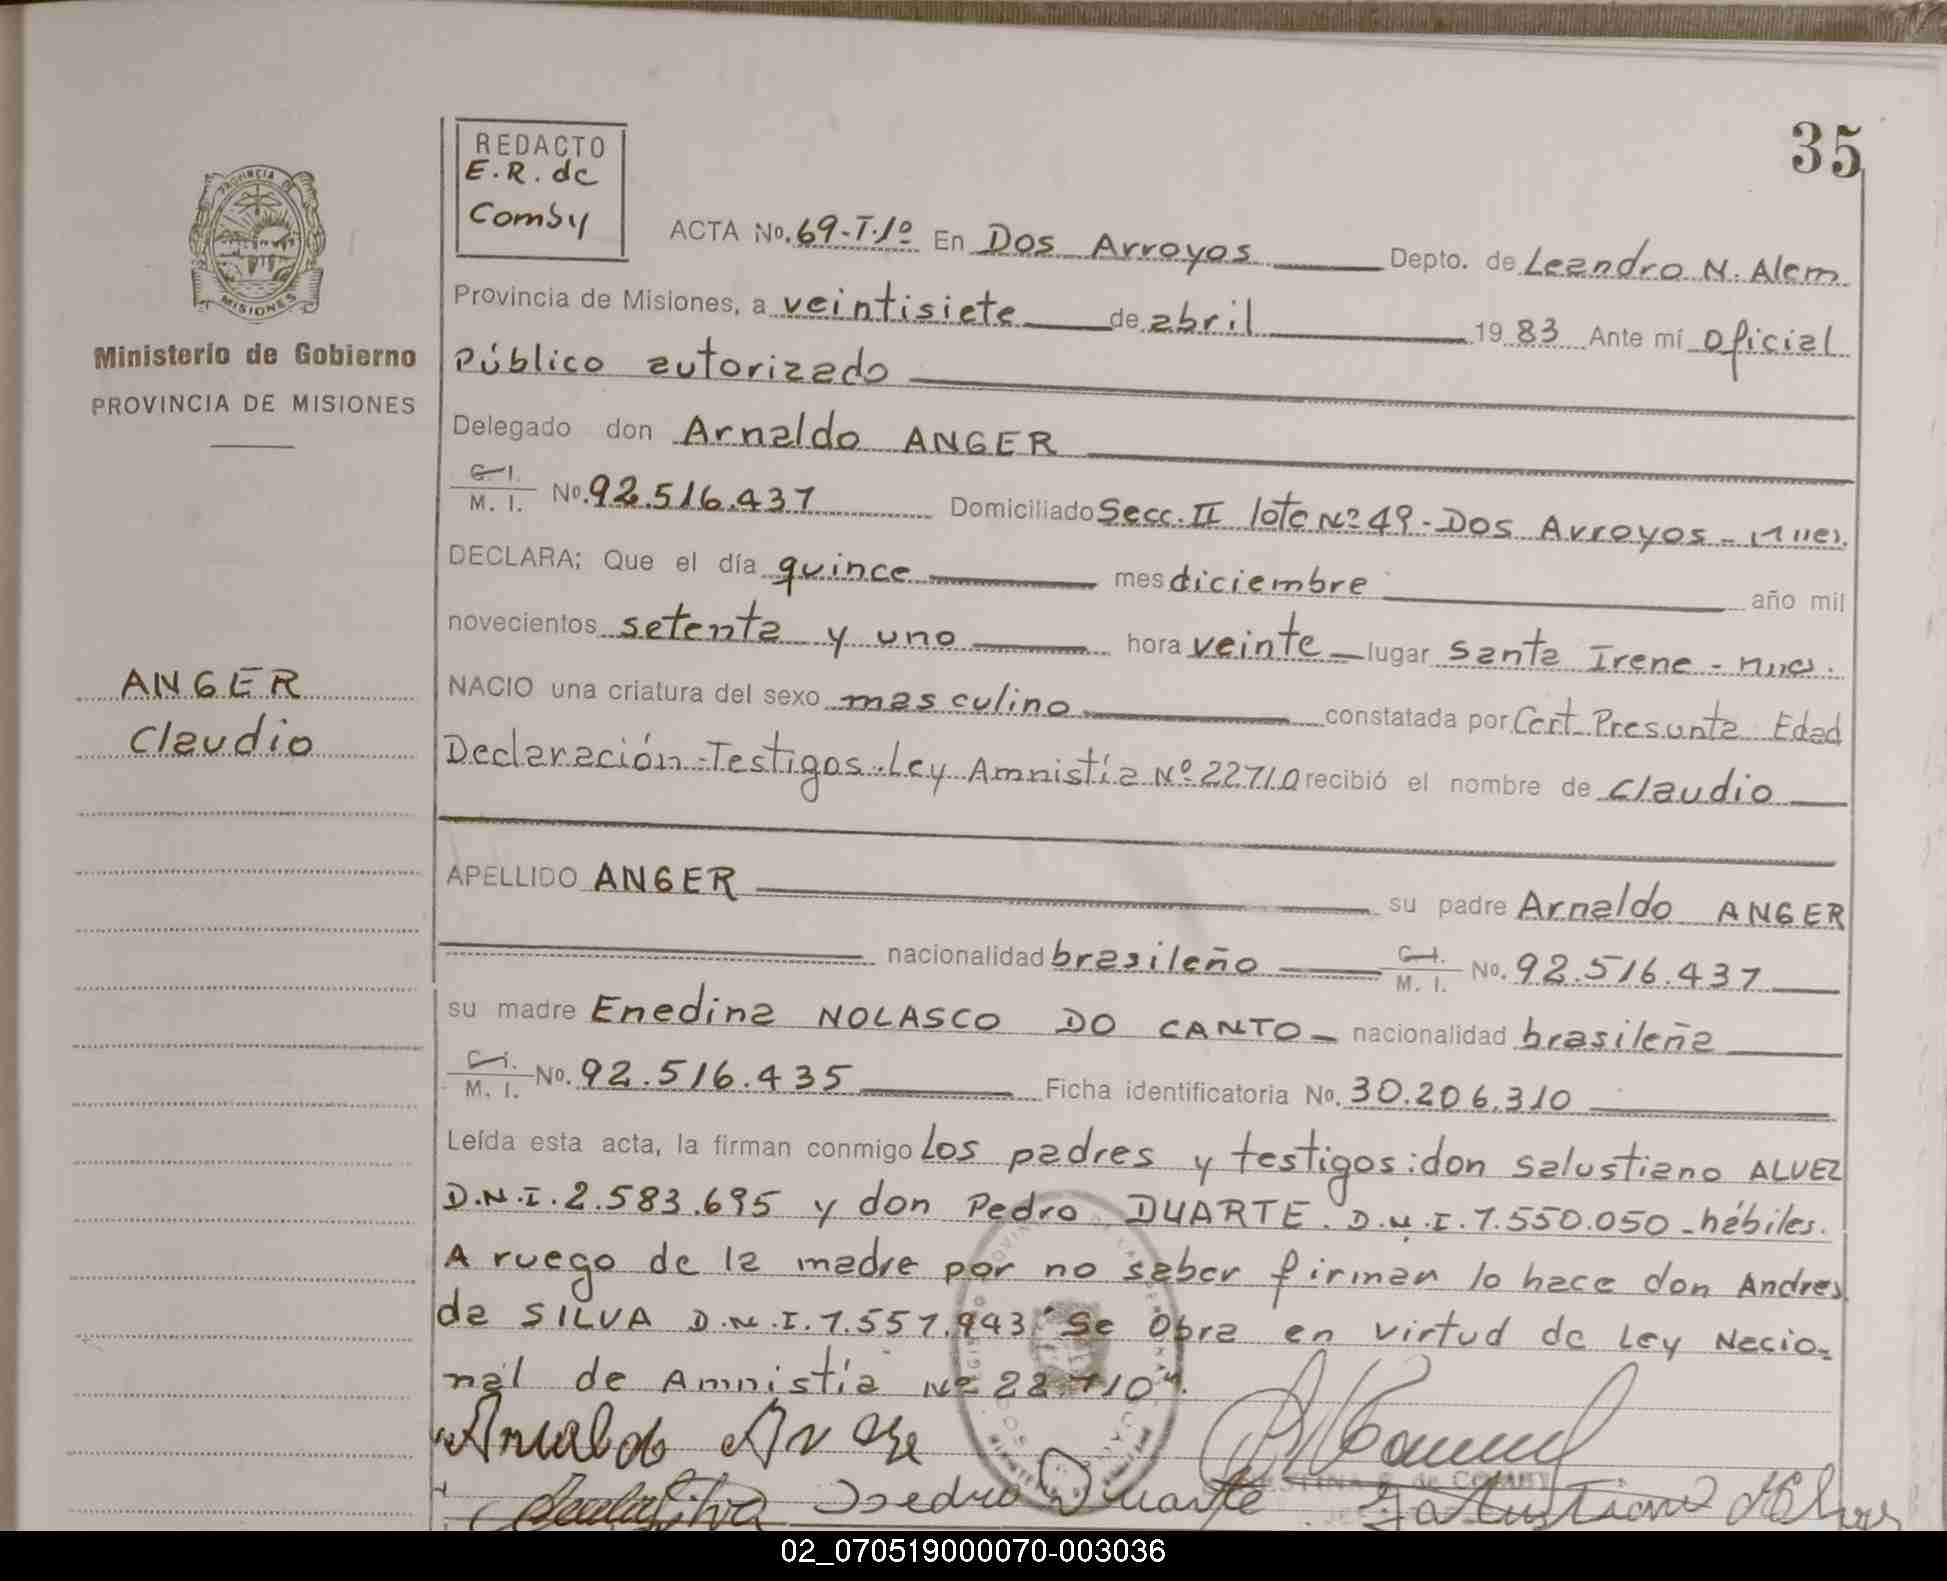 35
REDACTO
E.R. de
Comby
ACTA No. 69-T.1º En Dos Arroyos Depto. de Leandro N. Alem
Provincia de Misiones, a veintisiete de abril 1983 Ante mí Oficial
Público autorizado
Delegado don Arnaldo ANGER
C.I. M. I. No. 92.516.437 Domiciliado Secc. II lote Nº 49 - Dos Arroyos - Mnes.
DECLARA; Que el día quince mes diciembre año mil
novecientos setenta y uno hora veinte lugar Santa Irene - Mnes.
NACIO una criatura del sexo masculino constatada por Cert. Presunta Edad
Declaración-Testigos-Ley Amnistía Nº 22710 recibió el nombre de Claudio
APELLIDO ANGER su padre Arnaldo ANGER
nacionalidad brasileño C.I. M. I. No. 92.516.437
su madre Enedina NOLASCO DO CANTO nacionalidad brasileña
C.I. M. I. No. 92.516.435 Ficha identificatoria No. 30.206.310
Leída esta acta, la firman conmigo los padres y testigos: don Salustiano ALVEZ
D.N.I. 2.583.695 y don Pedro DUARTE. D.N.I. 7.550.050 - hábiles.
A ruego de la madre por no saber firmar lo hace don Andres
da SILVA D.N.I. 7.557.943 "Se Obra en virtud de Ley Nacio-
nal de Amnistía Nº 22.710".
Arnaldo
Pedro Duarte
PROVINCIA DE
MISIONES
Ministerio de Gobierno
PROVINCIA DE MISIONES
ANGER
Claudio
02_070519000070-003036